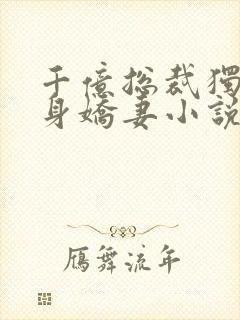 千億總裁獨
身嬌妻小說
鴈舞流年